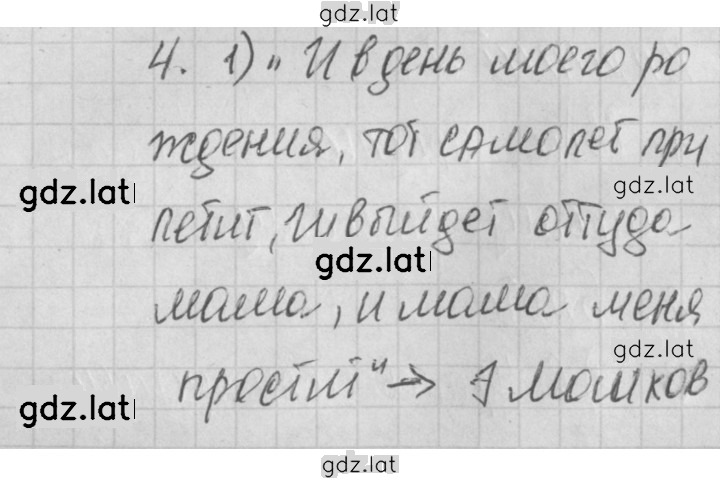 gdz.lat
4. 1) „И в день моего ро
ждения, тот самолет при
gdz.lat gdz.lat
летит, и выйдет оттуда
gdz.lat
мама, и мама меня
gdz.lat
простит“ → Я Мошков
gdz.lat
gdz.lat